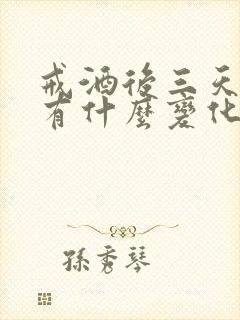 戒酒後三天
有什麼變化
孫秀琴